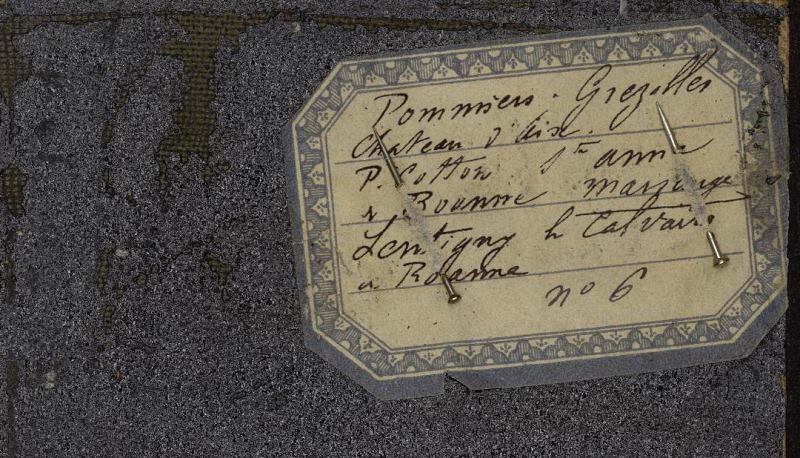 Pommiers. Grezolles
Chateau d'aix.
P. Cotton Ste anne
a Roanne mariage
Lentigny le Calvaire
a Roanne
no 6